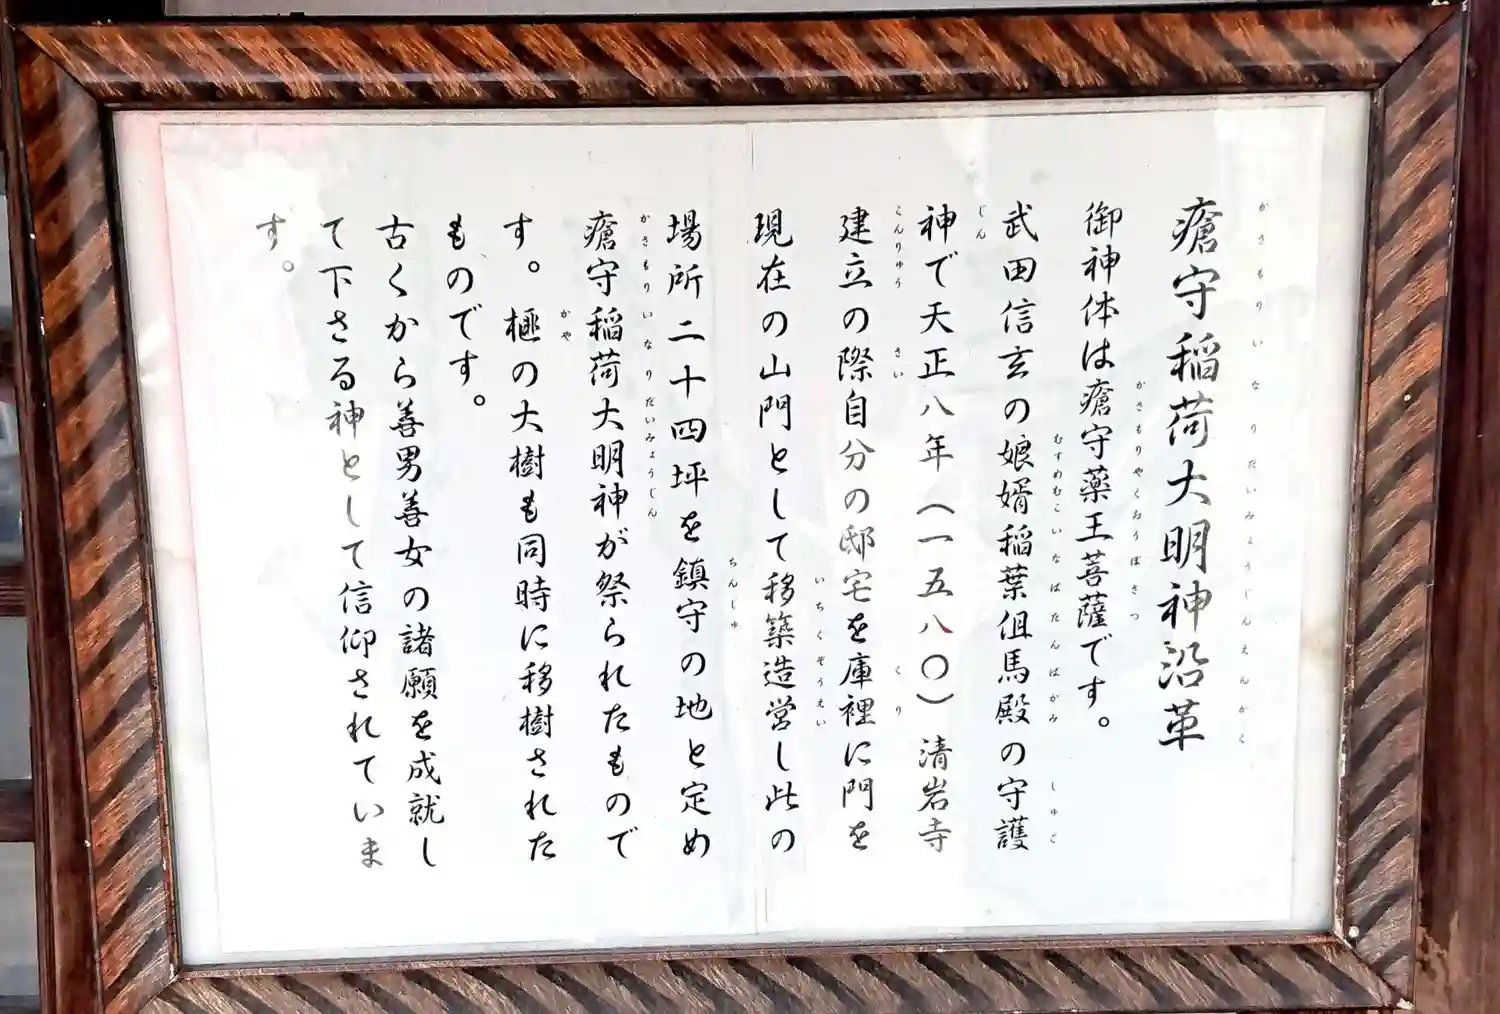 瘡守稲荷大明神沿革
御神体は瘡守薬王菩薩です。
武田信玄の娘婿稲葉伹馬殿の守護
神で天正八年(一五八〇)清岩寺
建立の際自分の邸宅を庫裡に門を
現在の山門として移築造営し此の
場所二十四坪を鎮守の地と定め
瘡守稲荷大明神が祭られたもので
す。榧の大樹も同時に移樹された
ものです。
古くから善男善女の諸願を成就し
て下さる神として信仰されていま
す。